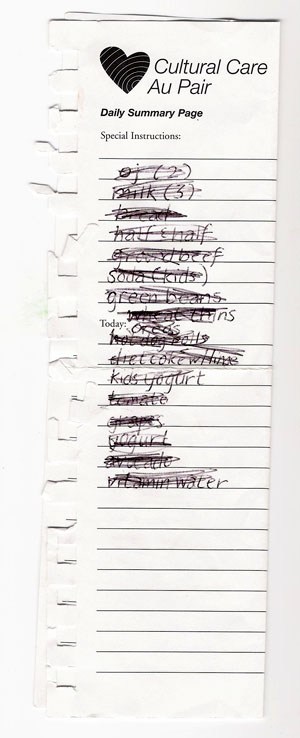 Cultural Care
Au Pair
Daily Summary Page
Special Instructions:
oj (2)
milk (3)
bread
half & half
ground beef
soda (kids)
green beans
wheat thins
Today: oreos
hot dog rolls
diet coke w/lime
kids yogurt
tomato
grapes
yogurt
avocado
vitamin water